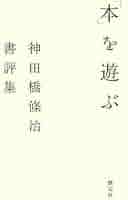 「本」を遊ぶ
神田橋條治
書評集
創元社